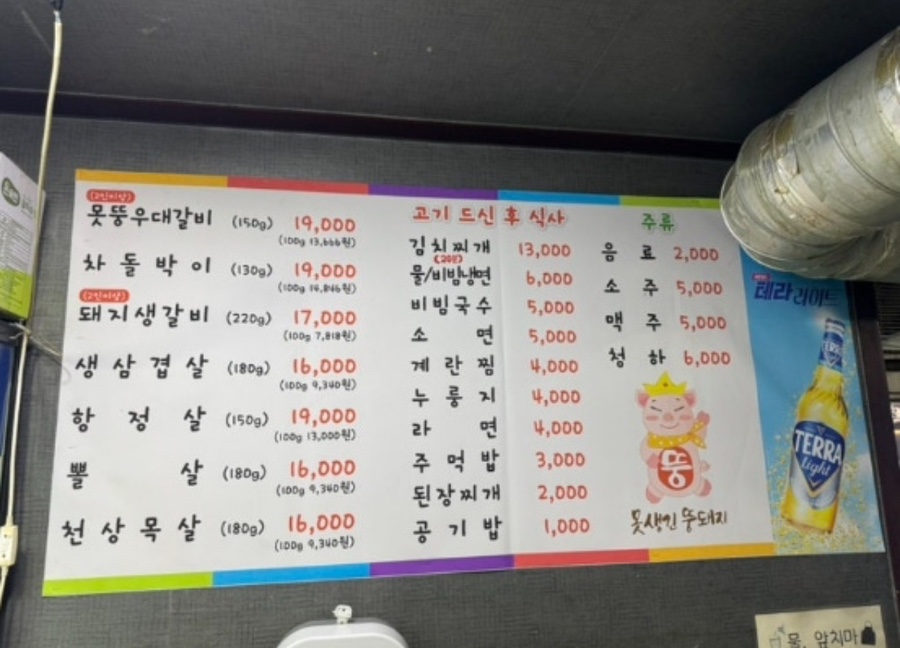 (2인이상)
못뚱우대갈비 (150g) 19,000
(100g 13,666원)
차돌박이 (130g) 19,000
(100g 14,846원)
(2인이상)
돼지생갈비 (220g) 17,000
(100g 7,818원)
생삼겹살 (180g) 16,000
(100g 9,340원)
항정살 (150g) 19,000
(100g 13,000원)
뽈살 (180g) 16,000
(100g 9,340원)
천상목살 (180g) 16,000
(100g 9,340원)
고기 드신 후 식사
김치찌개 13,000
(2인)
물/비빔냉면 6,000
비빔국수 5,000
소면 5,000
계란찜 4,000
누룽지 4,000
라면 4,000
주먹밥 3,000
된장찌개 2,000
공기밥 1,000
주류
음료 2,000
소주 5,000
맥주 5,000
청하 6,000
뚱
못생긴 뚱돼지
테라 라이트
TERRA
Light
물, 앞치마